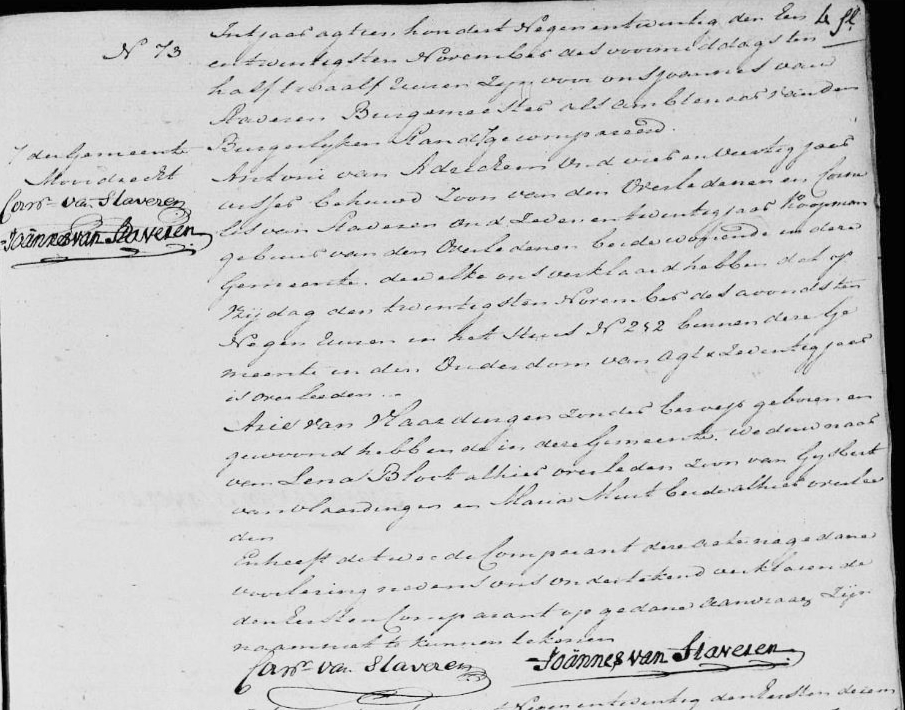 N 73
In't jaar agtien hondert Negenentwintig den Een
entwintigsten November des voormiddags ten
half twaalf Uuren Zijn voor ons Joannes van
Staveren Burgemeester als ambtenaar van den
Burgerlijken Stand / gecompareerd
/ der Gemeente
Moordrecht
Corns van Staveren
Joännes van Staveren
Antoni van oud vier en veertig jaar
behuwd Zoon van den Overledenen en Corne
lis van Staveren oud Zeven entwintig jaar koopman
gebuur van den Overledenen beide wonende in deze
Gemeente. dewelke ons verklaard hebben dat op
Vrijdag den twintigsten November des avonds ten
Negen Uuren in het Huis N 252 binnen deze Ge
meente in den Ouderdom van agt & Zeventig jaar
is overleeden
Arie van Vlaardingen zonder beroep geboren en
gewoond hebbende in deze Gemeente. Weduwnaar
van Lena Block alhier overleden Zoon van Gijsbert
van Vlaardingen en Maria Muit beide alhier overlee
den
En heeft de tweede Comparant deze acte na gedane
voorlezing nevens ons onderteekend verklarende
den Eersten Comparant op gedane aanvraag Zijn
naam niet te kunnen tekenen
Corns van Staveren Joännes van Staveren
Negenentwintig den Eersten decem